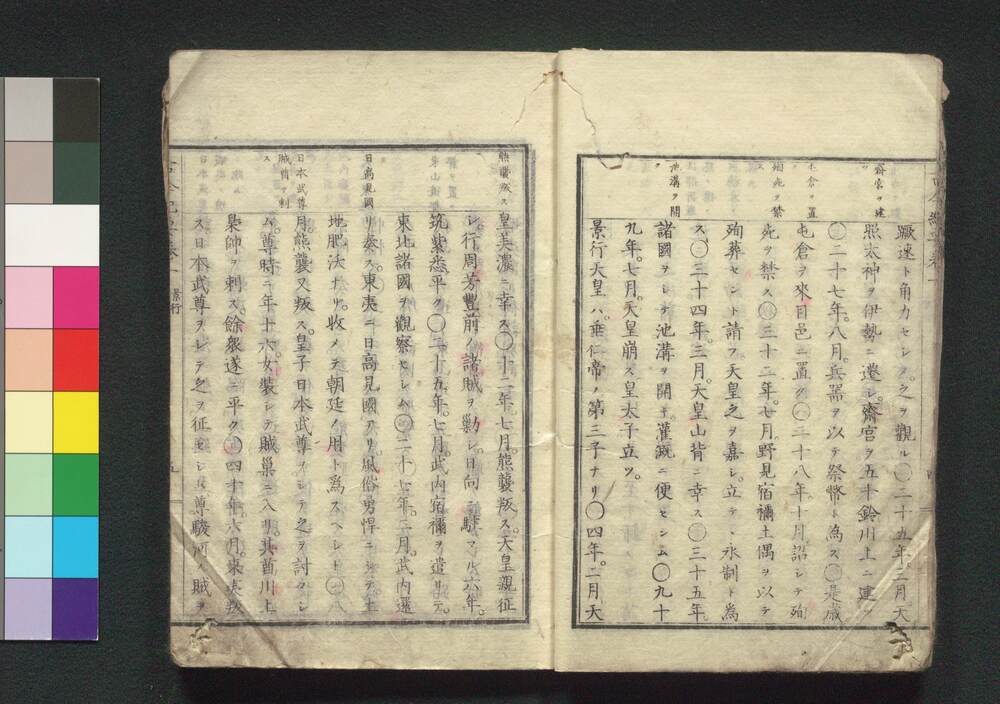 齋宮ヲ建ツ
蹶速ト角力セシメ之ヲ觀ル〇二十五年二月天
照太神ヲ伊勢ニ遷シ齋宮ヲ五十鈴川上ニ建ツ
〇二十七年。八月。兵器ヲ以テ祭幣ト為ス〇是歳
屯倉ヲ置ク
屯倉ヲ來目邑ニ置ク〇二十八年。十月詔シテ殉
殉死ヲ禁ス
死ヲ禁ス〇三十二年。七月。野見宿禰土偶ヲ以テ
殉葬セント請フ。天皇之ヲ嘉シ。立テヽ永制ト為
ス。〇三十四年。三月。天皇山背ニ幸ス〇三十五年。
池溝ヲ開ク
諸國ヲシテ池溝ヲ開キ。灌漑ニ便セシム〇九十
九年。七月。天皇崩ス皇太子立ツ。
景行天皇ハ。垂仁帝ノ第三子ナリ〇四年。二月。天
熊襲叛ス
皇美濃ニ幸ス〇十二年。七月。熊襲叛ス。天皇親征
シ。行周芳豐前ノ諸賊ヲ勦シ。日向ニ駐マル六年。
筑紫悉平ク〇二十五年。七月。武内宿禰ヲ遣リテ。
東北諸國ヲ觀察セシム〇二十七年。二月。武内還
日高見國
リ奏ス。東夷ニ日高見國アリ。風俗男悍ニシテ。土
地肥沃ナリ。收メテ朝廷ノ用ト為スヘシト〇八
日本武尊賊酋ヲ刺ス
月。熊襲又叛ス。皇子日本武尊ヲシテ之ヲ討タシ
ム。尊時ニ年十六。女装シテ賊巣ニ入リ。其酋川上
梟帥ヲ刺ス。餘衆遂ニ平ク〇四十年。六月。東夷叛
ス日本武尊ヲシテ之ヲ征セシム尊駿河ノ賊ヲ
景行
五